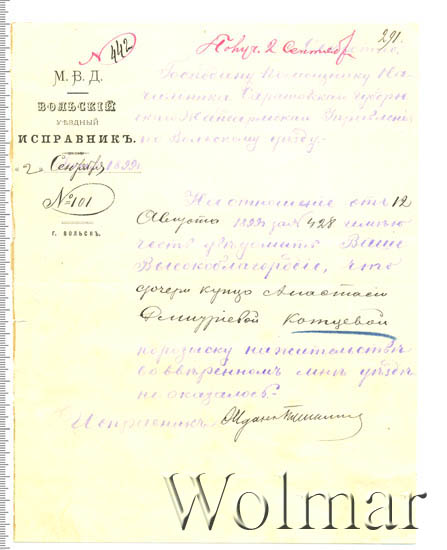 291.
N 442
Получ. 2 Сентябр
М. В. Д.
ВОЛЬСКІЙ
УѢЗДНЫЙ
ИСПРАВНИКЪ.
2 Сентября 1899 г.
№ 101
Г. ВОЛЬСКЪ.
Господину Помощнику На-
чальника Саратовскаго Губерн
скаго Жандармскаго Управленія
по Вольскому уѣзду.
На отношеніе отъ 12
Августа 1899 за № 428 имѣю
честь увѣдомить Ваше
Высокоблагородіе, что
дочери купца Анастасіи
Дмитріевой Котцевой
по розыску на жительствѣ
во ввѣренномъ мнѣ уѣздѣ
не оказалось.
Исправникъ
Wolmar